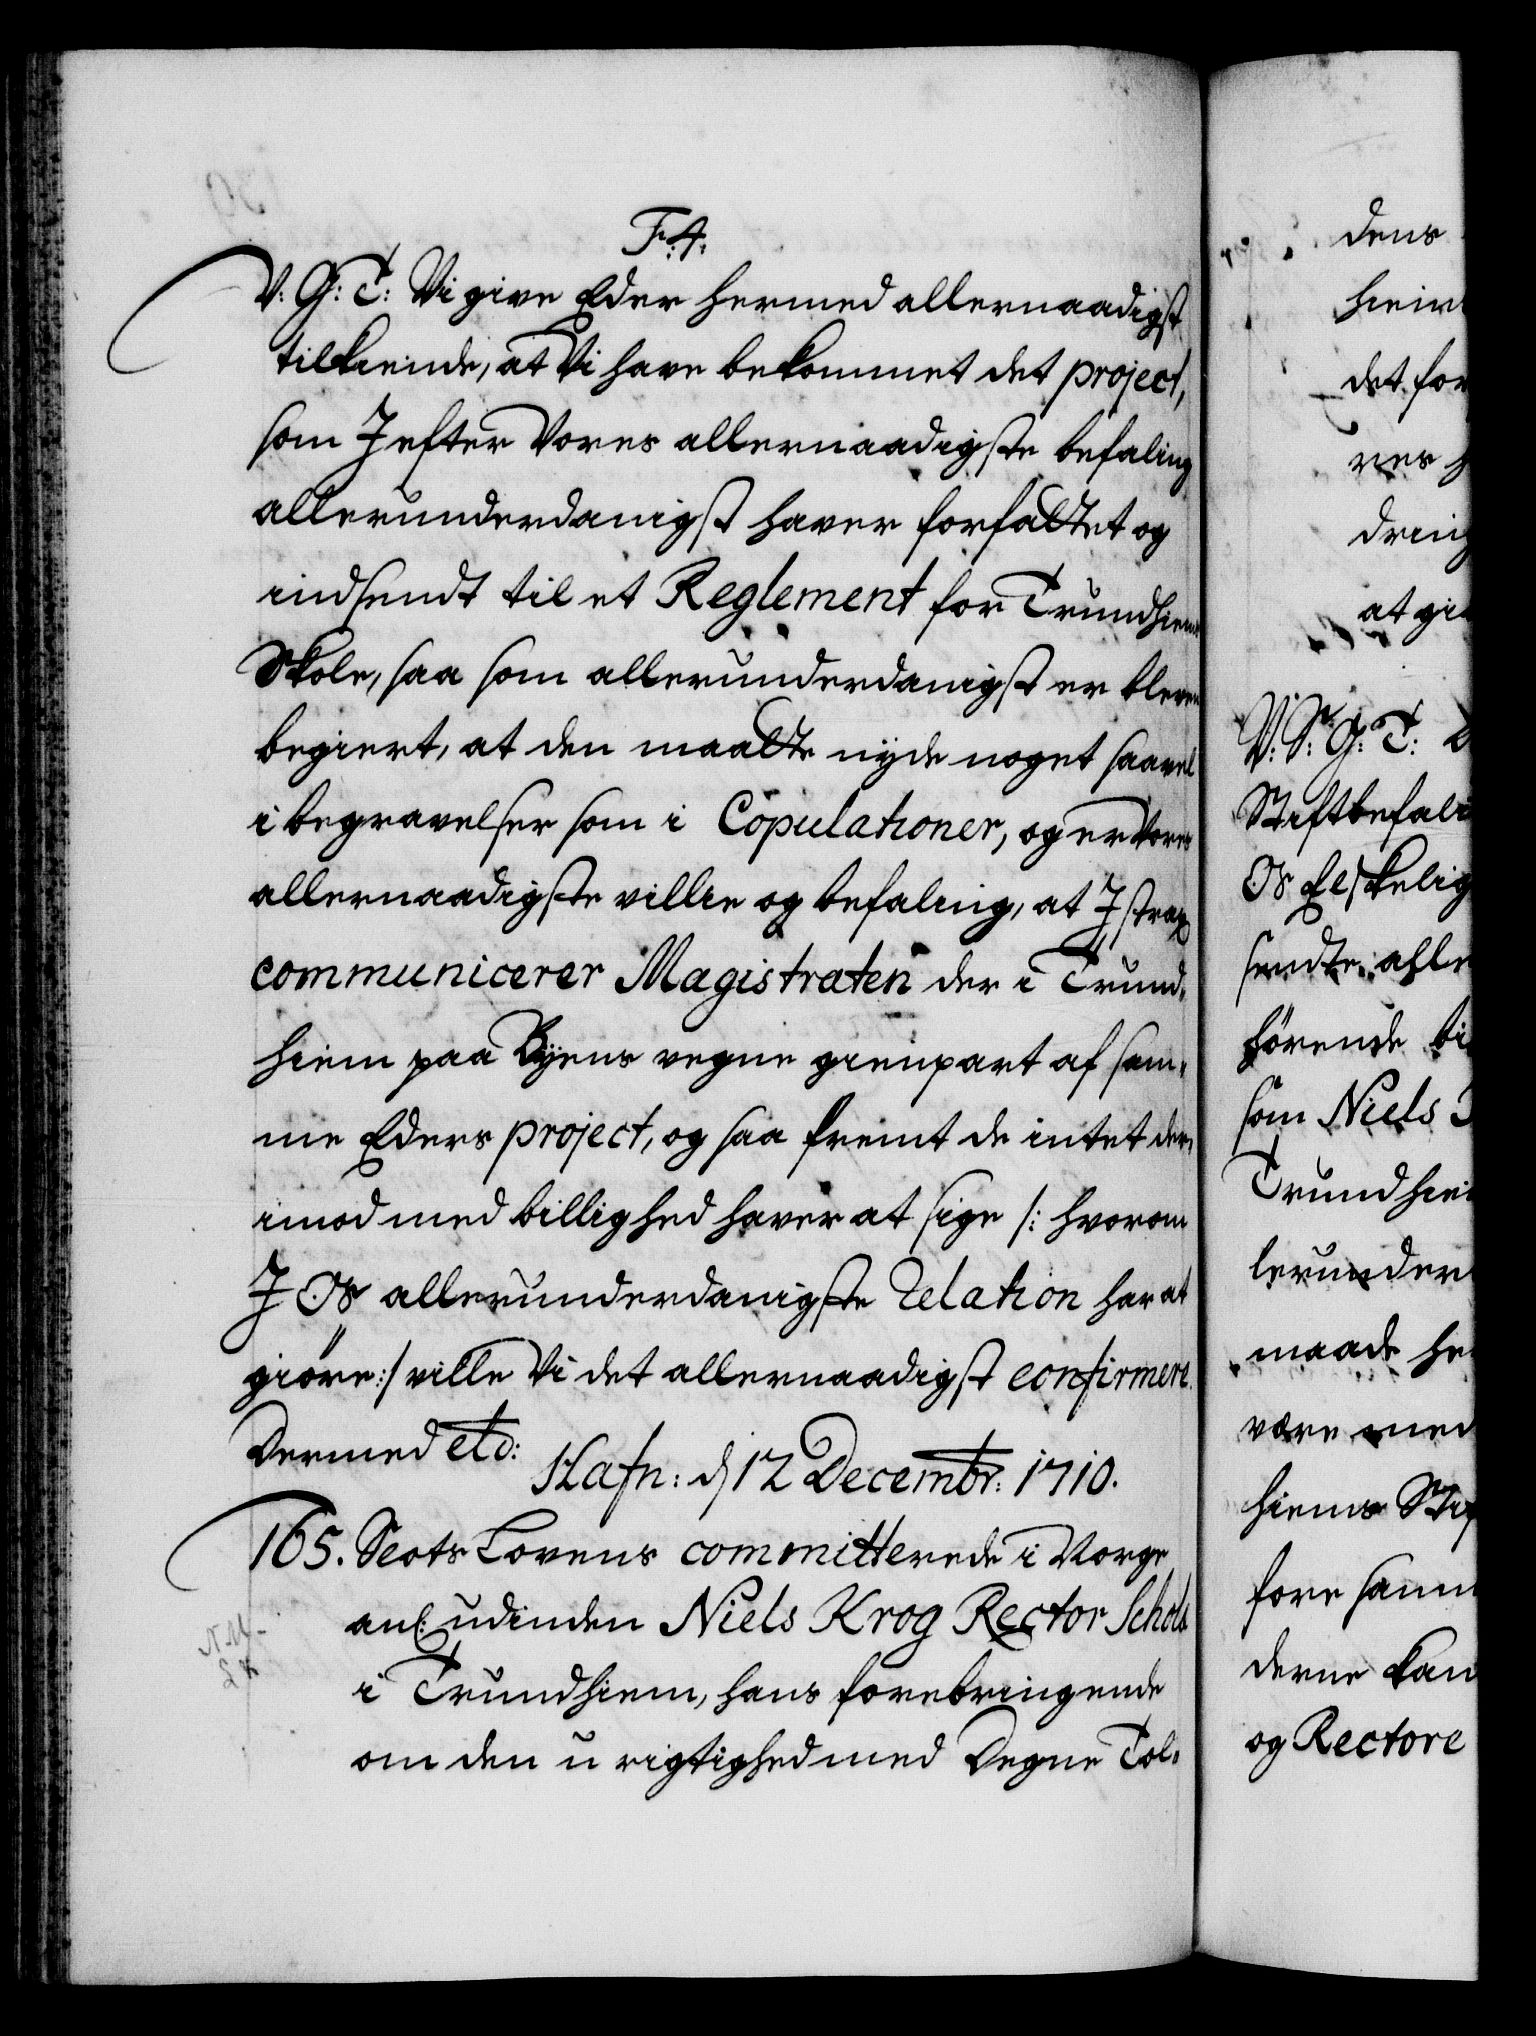 F: 4.
V: G: T: Vi give Eder hermed allernaadigst
tilkiende, at Vi have bekommet det project,
som I efter Vores allernaadigste befaling
allerunderdanigst haver forfattet og
indsendt til et Reglement for Trundhiems
Skole, saa som allerunderdanigst er bleven
begiert, at den maatte nyde noget saavel
i begravelser som i Copulationer, og er Vores
allernaadigste villie og befaling, at I strax
communicerer Magistraten der i Trund-
hiem paa Byens vegne gienpart af sam-
me Eders project, og saa fremt de intet der-
imod med billighed haver at sige /: hvorom
I Os allerunderdanigste Relation har at
giöre :/ ville Vi det allernaadigst confirmere.
Dermed etc:
Hafn: d 12 Decembr: 1710.
165. Slots Lovens committerede i Norge
anl: udinden Niels Krog Rector Schols
i Trundhiem, hans forebringende
om den u rigtighed med Degne Tol-
N. M.
dens
det for
ver
dring
at gi
V: S: G: T:
Stiftbefali
Os Elskelig
sendte alle
hörende bi
som Niels
Trundhie
lerunder
maade he
være med
hiems Stif
fore samm
derne kan
og Rectore